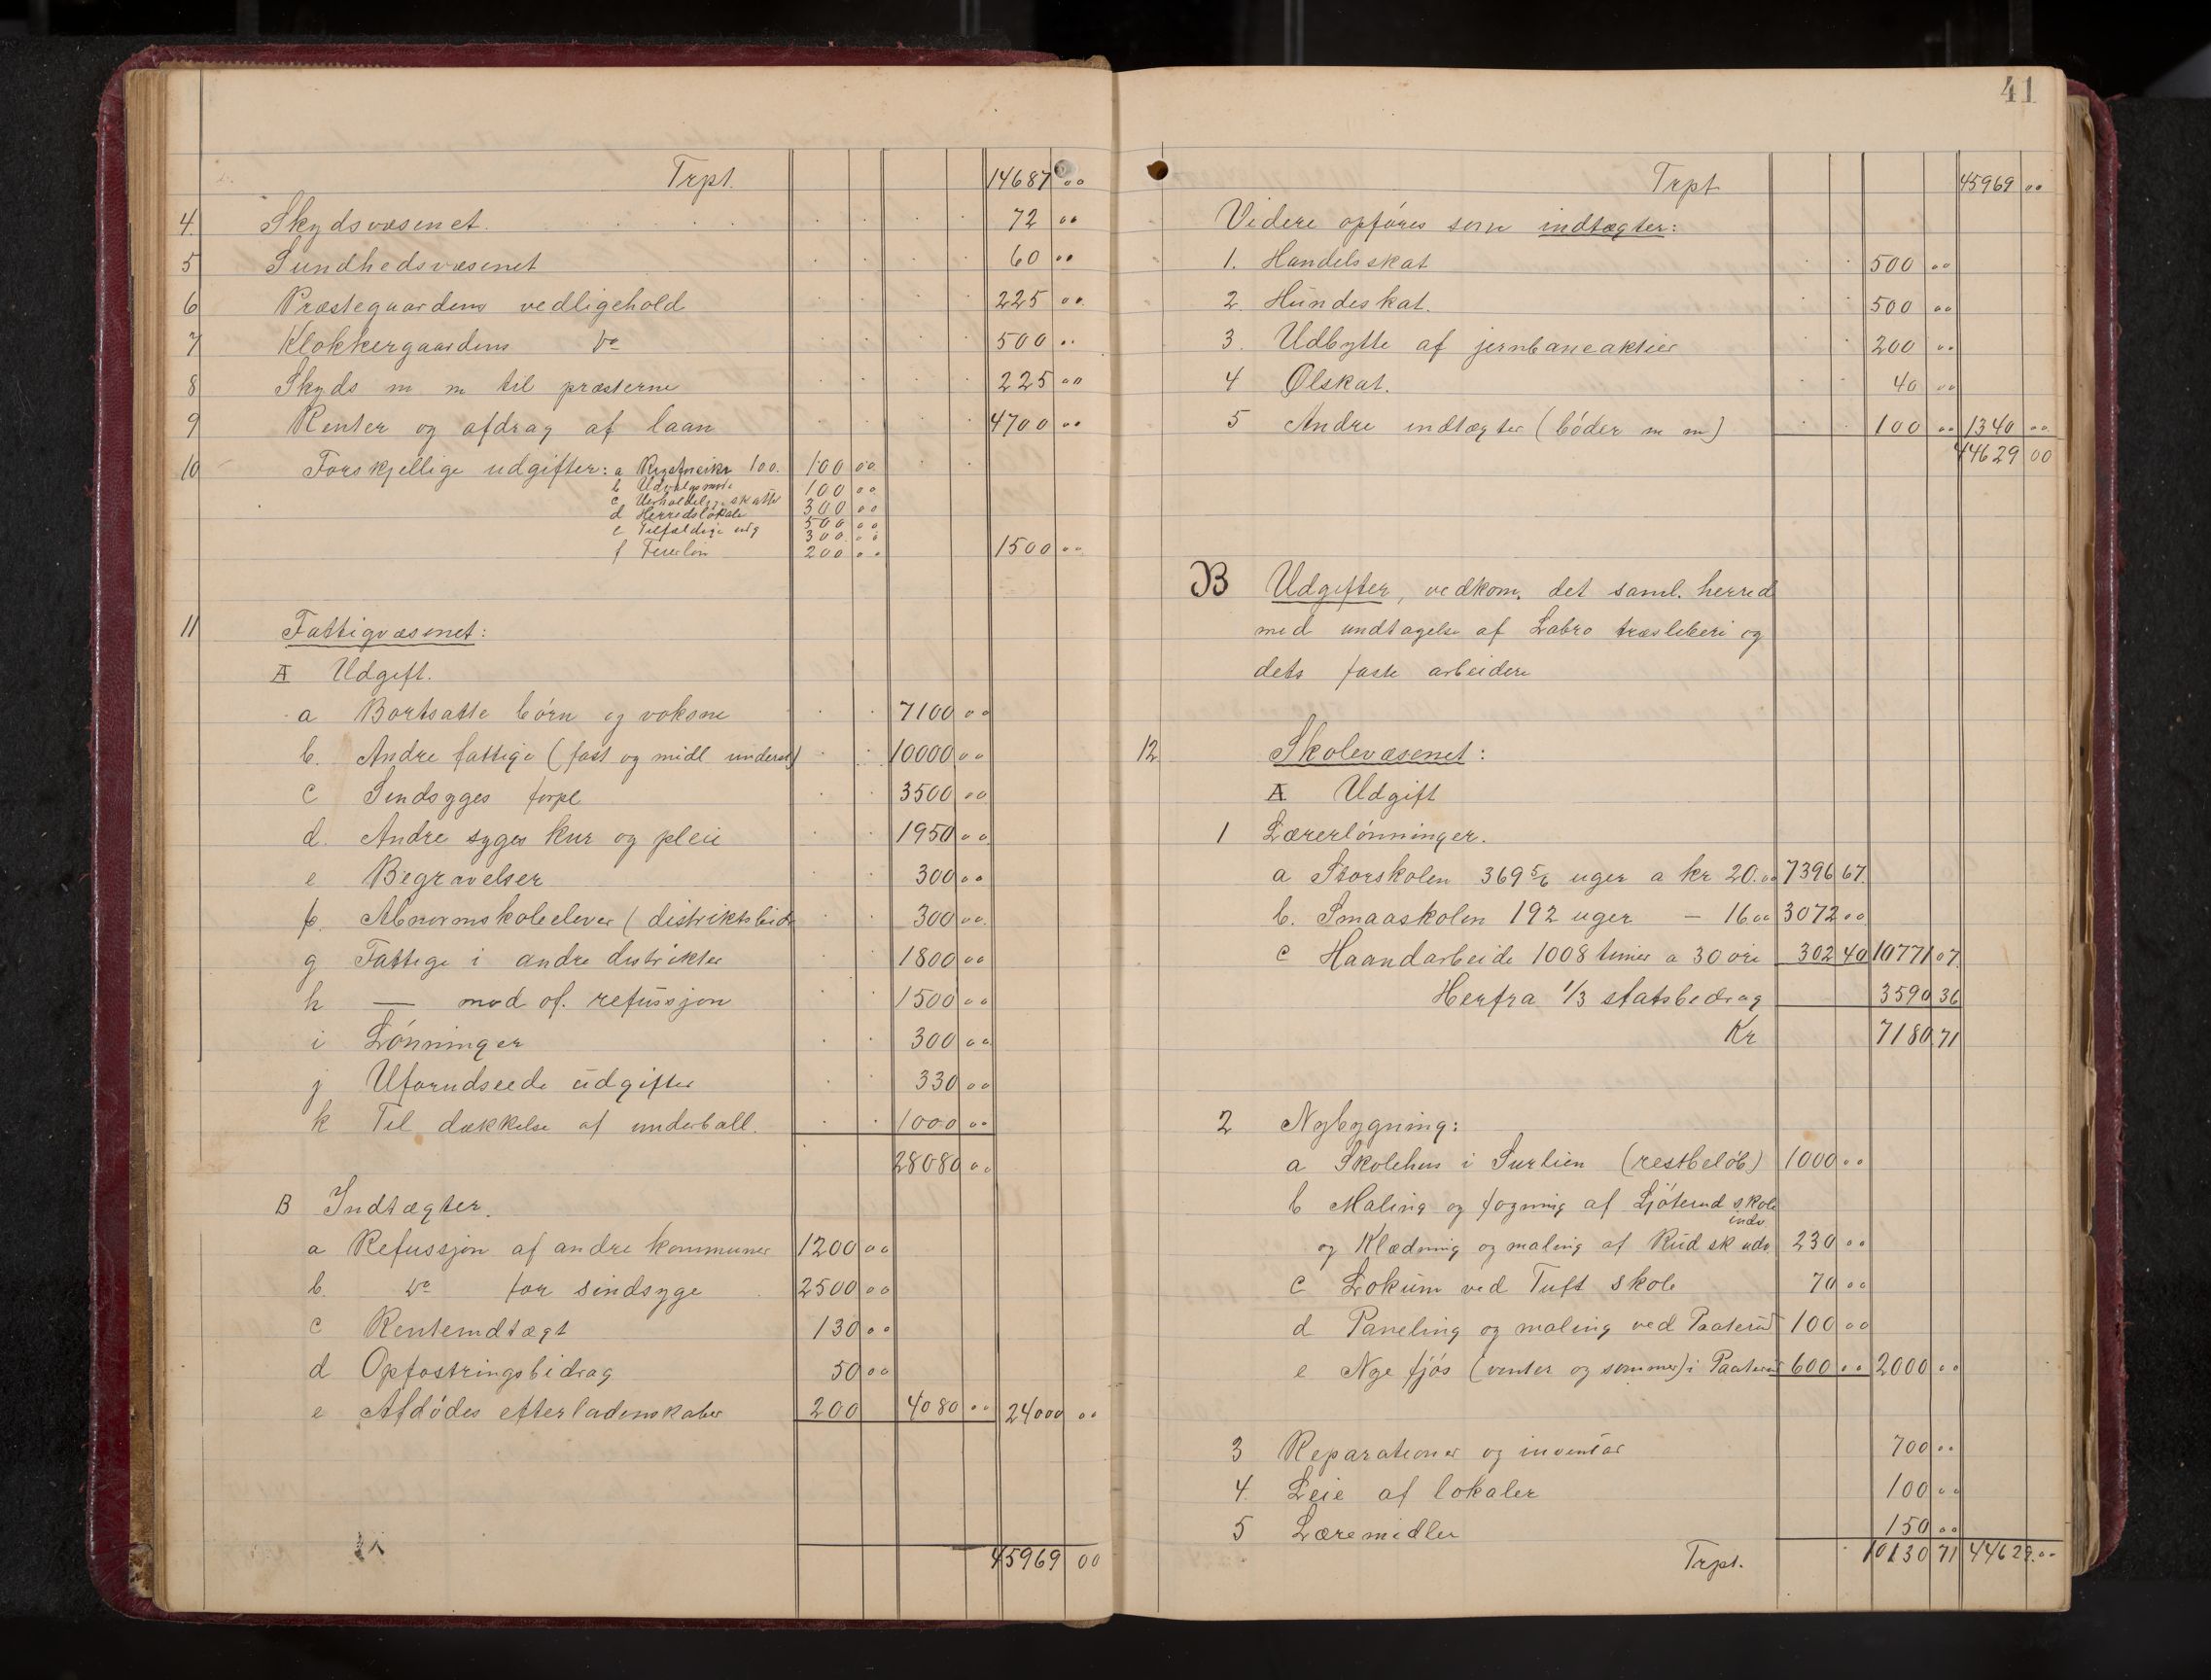 Trpt. 14687 00
4. Skydsvæsenet. 72 00
5 Sundhedsvæsenet 60 00
6 Præstegaardens vedligehold 225 00
7 Klokkergaardens do 500 00
8 Skyds m m til præsterne 225 00
9 Renter og afdrag af laan 4700 00
10 Forskjellige udgifter: a 100. 100 00
b Udvalgsmøde 100 00
c skatte 300 00
d Herredslokale 500 00
e Tilfældige udg 300 00
f 200 00 1500 00
11 Fattigvæsenet:
A Udgift.
a Bortsatte børn og voksne 7100 00
b. Andre fattige (fast og midl underst) 10000 00
c Sindsyges forpl 3500 00
d. Andre syges kur og pleie 1950 00
e Begravelser 300 00
f. Abnormskoleelever (distriktsbidr 300 00
g Fattige i andre distrikter 1800 00
h — mod of. refussjon 1500 00
i Lønninger 300 00
j Uforudseede udgifter 330 00
k Til dækkelse af underball. 1000 00
28080 00
B Indtægter.
a Refussjon af andre kommuner 1200 00
b. do for sindsyge 2500 00
c Renteindtægt 130 00
d Opfostringsbidrag 50 00
e Afdødes efterladenskaber 200 4080 00 24000 00
45969 00
41
Trpt 45969 00
Videre opføres som indtægter:
1. Handelsskat 500 00
2. Hundeskat. 500 00
3. Udbytte af jernbaneaktier 200 00
4 Ølskat. 40 00
5 Andre indtægter (bøder m m) 100 00 1340 00
44629 00
B Udgifter, vedkom. det saml. herred
med undtagelse af Labro træsliberi og
dets faste arbeidere
12 Skolevæsenet:
A Udgift
1 Lærerlønninger.
a Storskolen 369 5/6 uger a kr 20.00 7396 67.
b. Smaaskolen 192 uger — 16.00 3072 00
c Haandarbeide 1008 timer a 30 øre 302 40 10771 07.
Herfra 1/3 statsbedrag 3590 36
Kr 7180 71
2 Nybygning:
a Skolehus i Surlien (restbeløb) 1000 00
b Maling og af skole
indv.
og Klædning og maling af Rud sk udv. 230 00
c Lokum ved Tuft skole 70 00
d Paneling og maling ved Paaterud 100 00
e Nye fjøs (vinter og sommer) i Paaterud 600 00 2000 00
3 Reparationer og inventar 700 00
4. Leie af lokaler 100 00
5 Læremidler 150 00
Trpt. 10130 71 44629.00